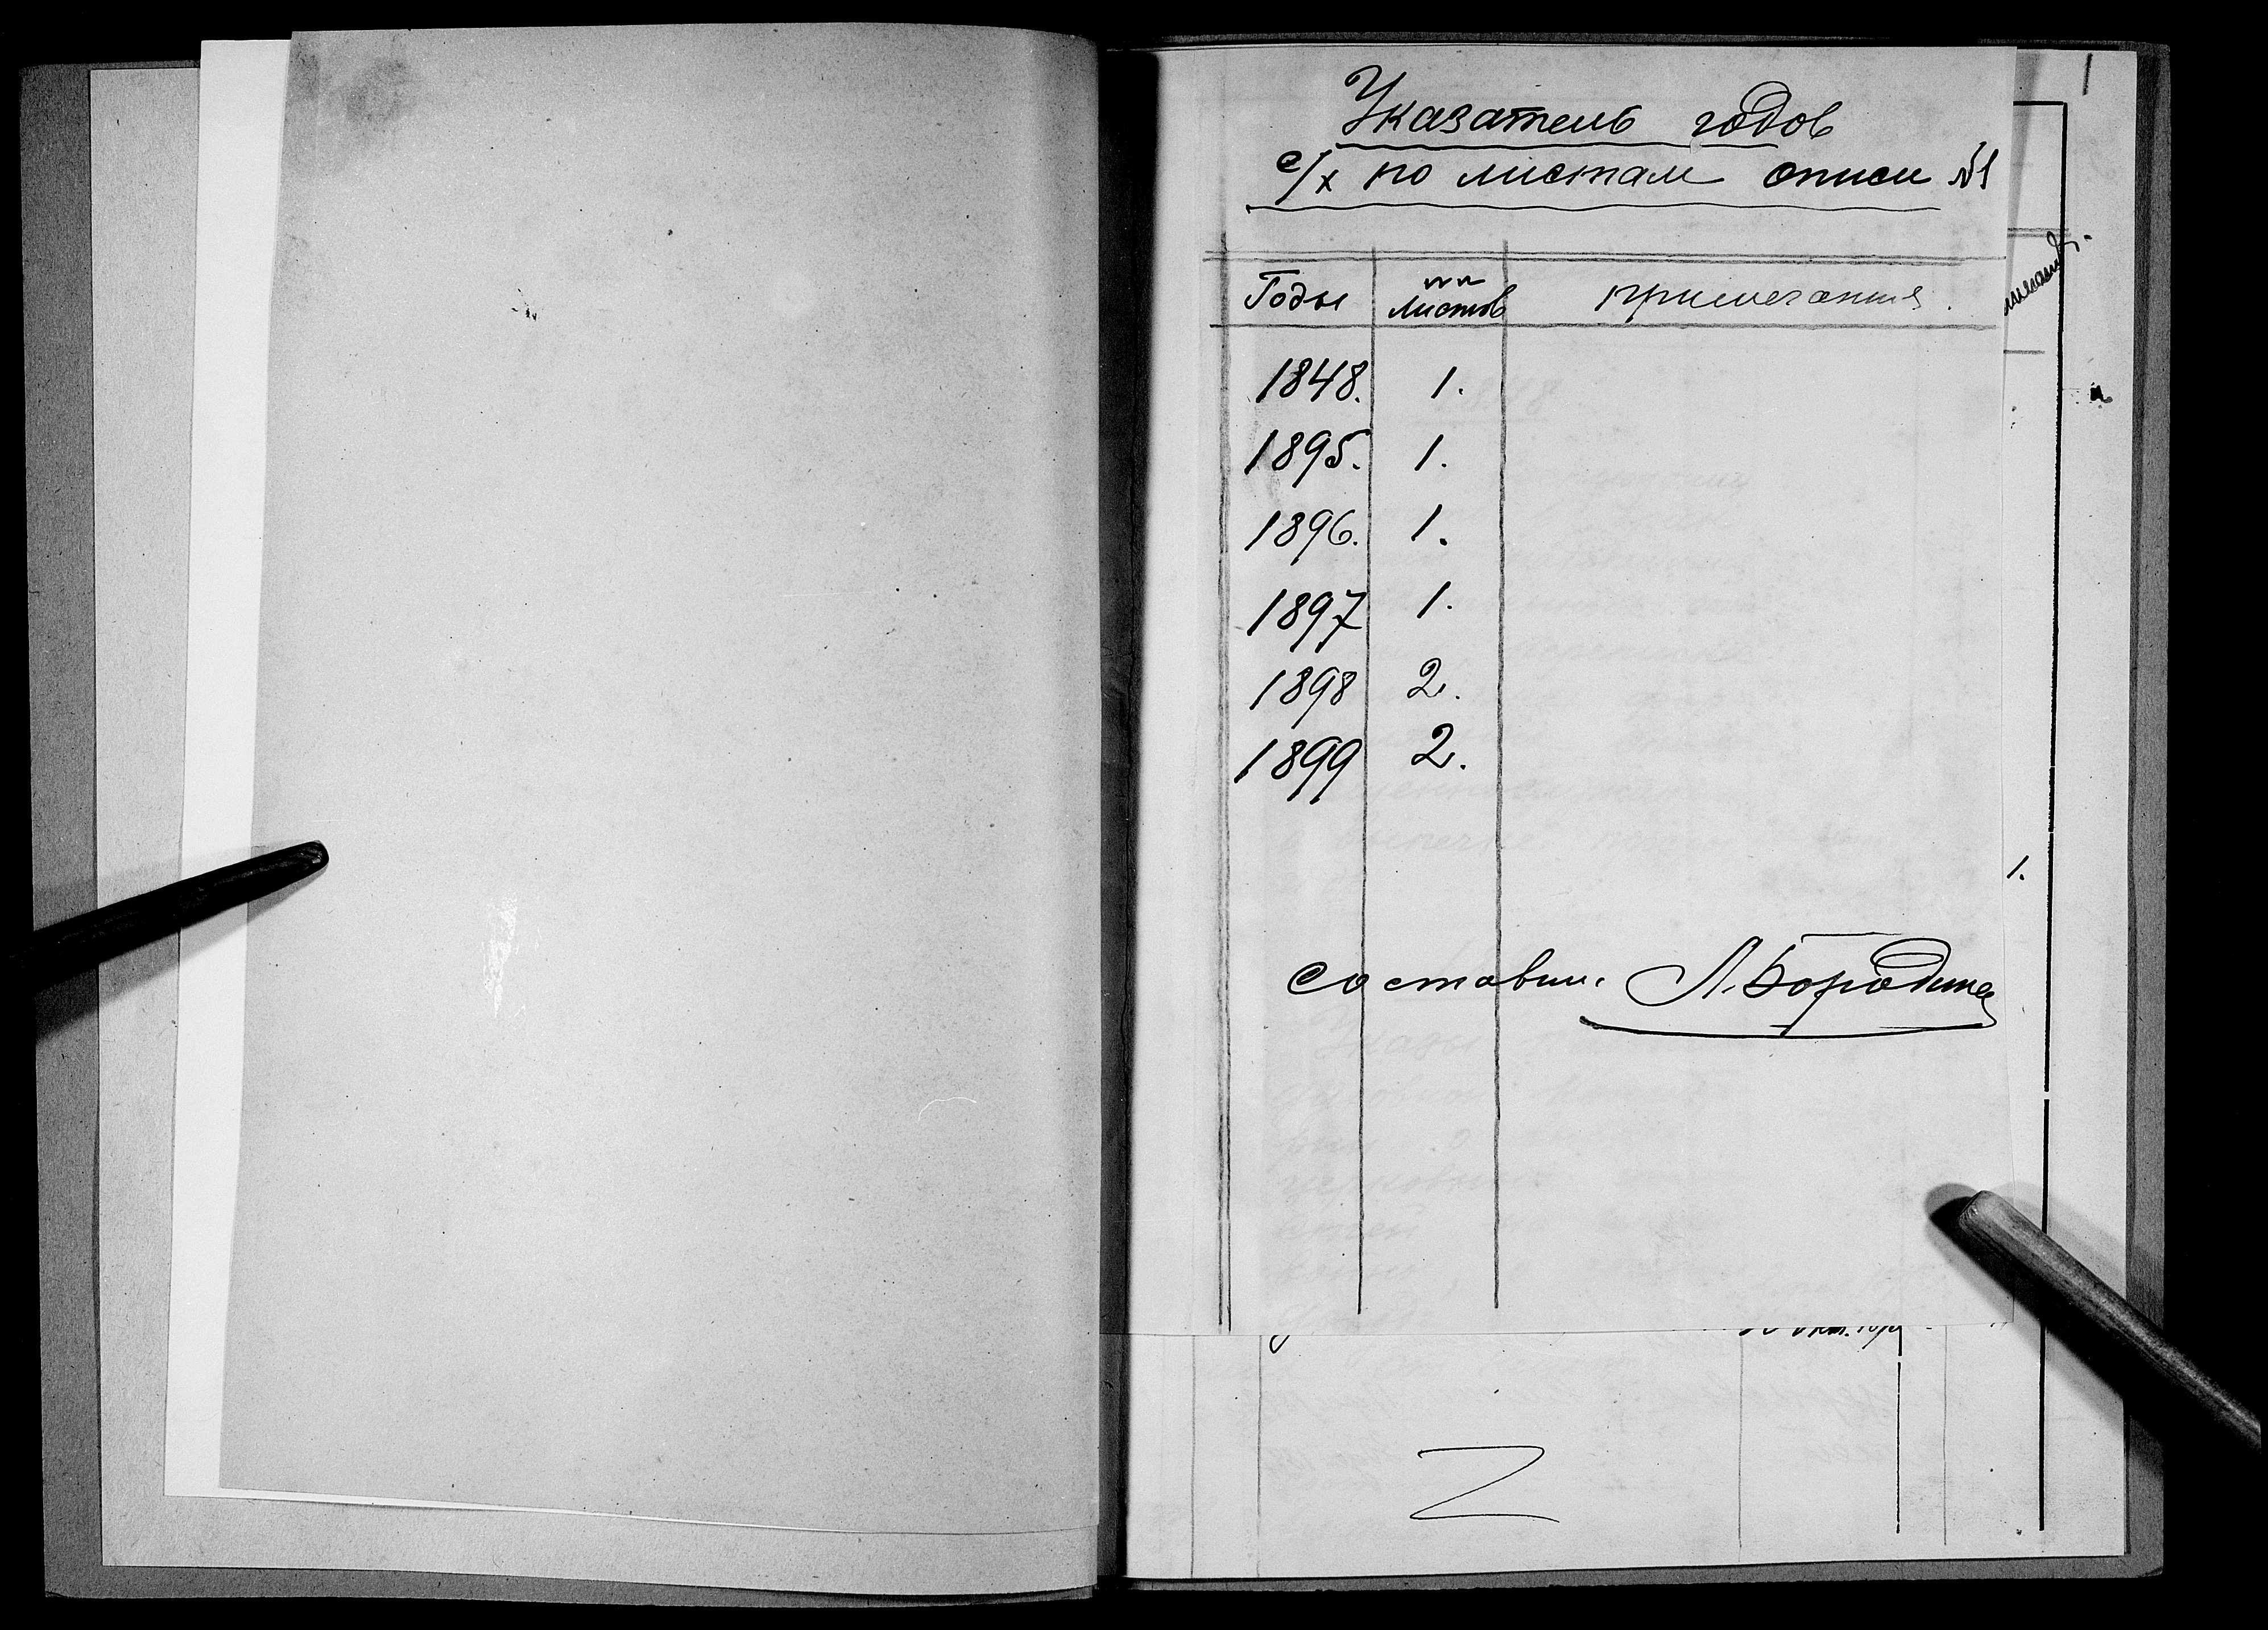 Указатель годов
с/х по листам описи №1
Годы | №№ листов | примечания.
1848. 1.
1895. 1.
1896. 1.
1897 1.
1898 2.
1899 2.
1.
составил. Л. Бородина